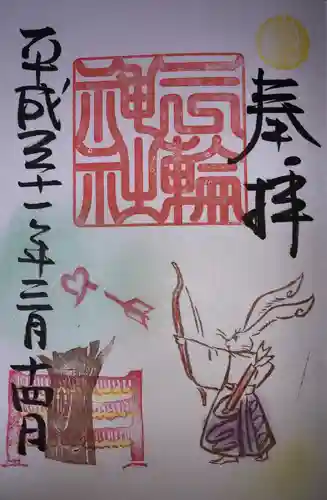 奉拝
三輪
神社
平成三十一年三月十四日